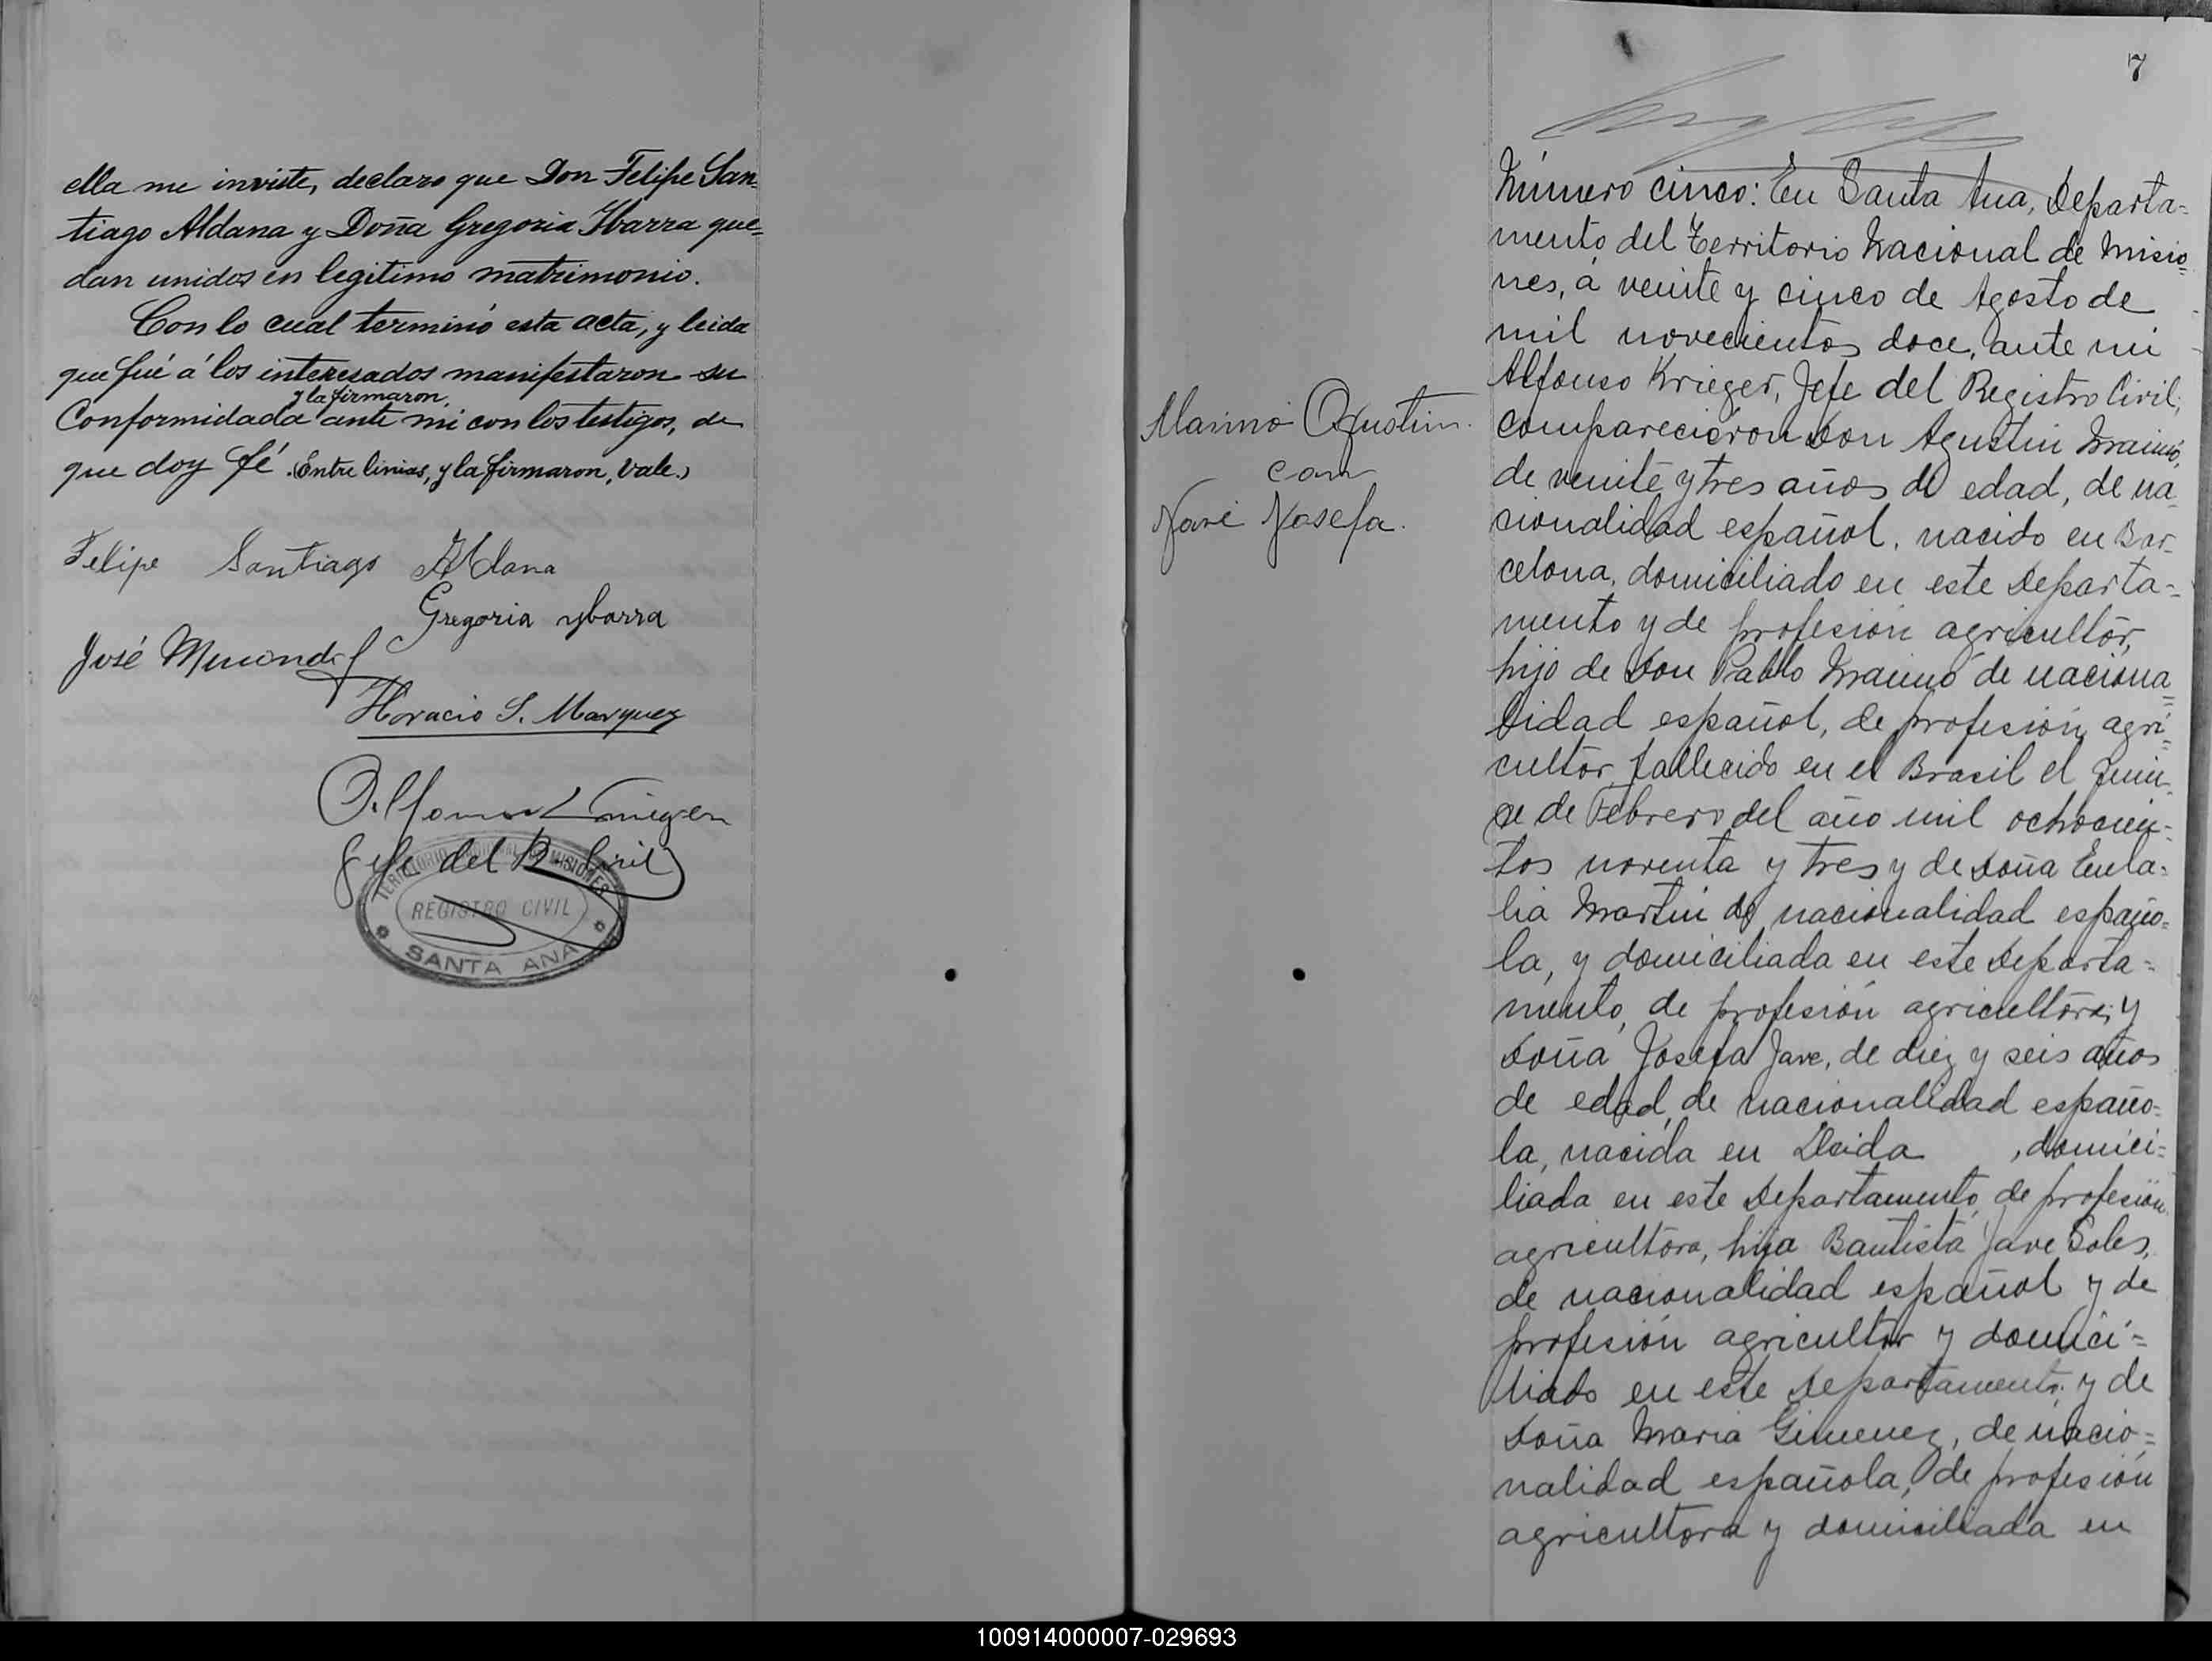 ella me inviste, declaro que Don Felipe San-
tiago Aldana y Doña Gregoria Ybarra que-
dan unidos en legitimo matrimonio.
Con lo cual terminó esta acta, y leida
que fué á los interesados manifestaron su
y la firmaron,
Conformidada ante mi con los testigos, de
que doy fé. (Entre linias, y la firmaron, vale.)
Felipe Santiago Aldana
Gregoria ybarra
José
Horacio S. Marquez
Alfonso Krieger
Jefe del R. Civil
TERRITORIO NACIONAL DE MISIONES
REGISTRO CIVIL
SANTA ANA
7
Maimó Agustin
con
Jové Josefa.
Número cinco: En Santa Ana, Departa=
mento del Territorio Nacional de Misio=
nes, á veinte y cinco de Agosto de
mil novecientos doce, ante mi
Alfonso Krieger, Jefe del Registro Civil,
comparecieron Don Agustin Maimó,
de veinte y tres años de edad, de na
cionalidad español, nacido en Bar-
celona, domiciliado en este Departa=
mento y de profesión agricultor,
hijo de Don Pablo Maimó de naciona=
lidad español, de profesión agri=
cultor, fallecido en el Brasil el quin-
ce de Febrero del año mil ochocien=
tos noventa y tres y de Doña Eula=
lia Martin de nacionalidad españo=
la, y domiciliada en este Departa=
mento, de profesión agricultora; y
Doña Josefa Jove, de diez y seis años
de edad, de nacionalidad españo=
la, nacida en Lleida , domici=
liada en este Departamento, de profesión
agricultora, hija Bautista Jove Soles,
de nacionalidad español y de
profesión agricultor y domici=
liado en este Departamento y de
Doña Maria Gimenez, de nacio=
nalidad española, de profesión
agricultora y domiciliada en
100914000007-029693